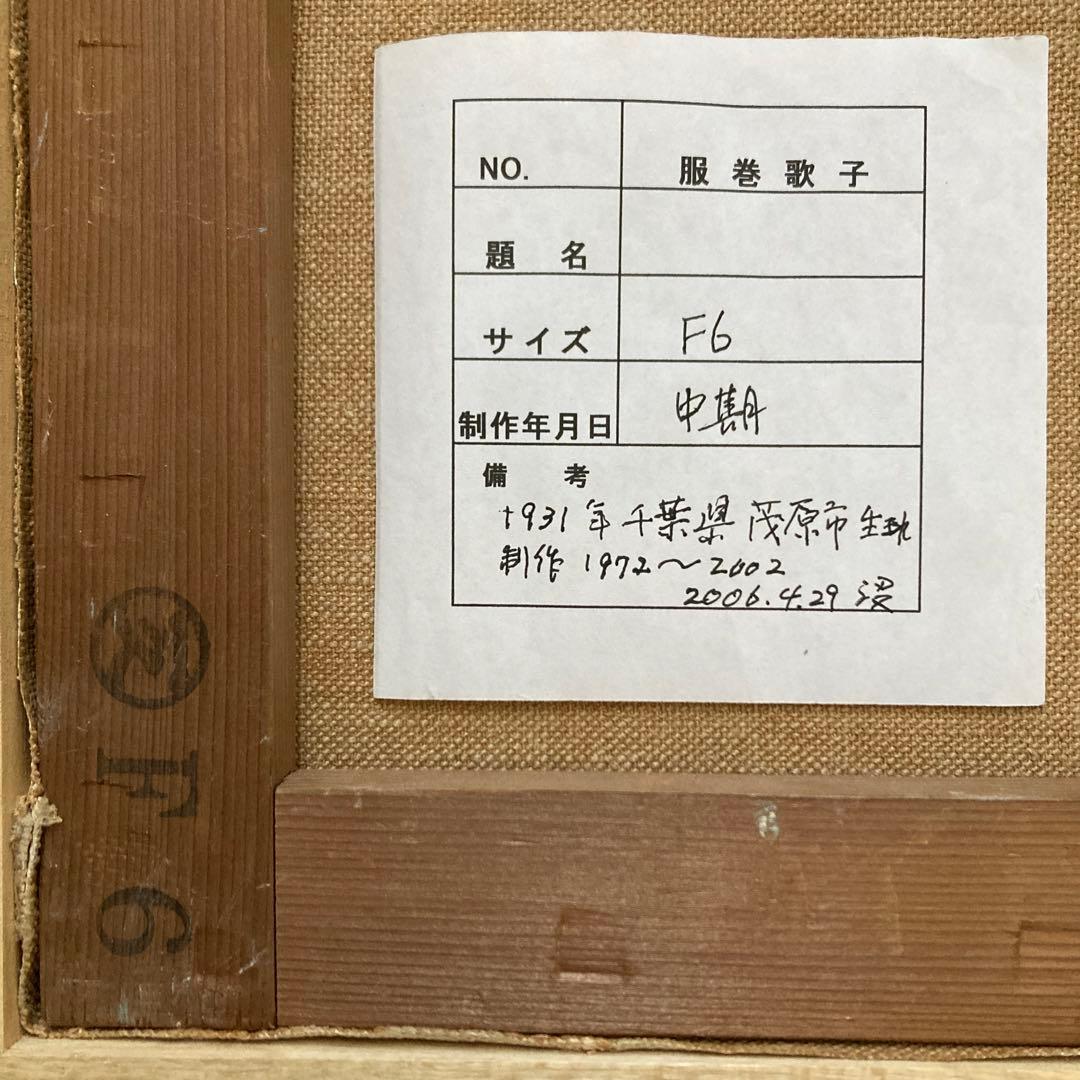 NO. 服巻歌子
題名
サイズ F6
制作年月日 中期
備考
1931年 千葉県 茂原市 生まれ
制作 1972〜2002
2006.4.29
F
6